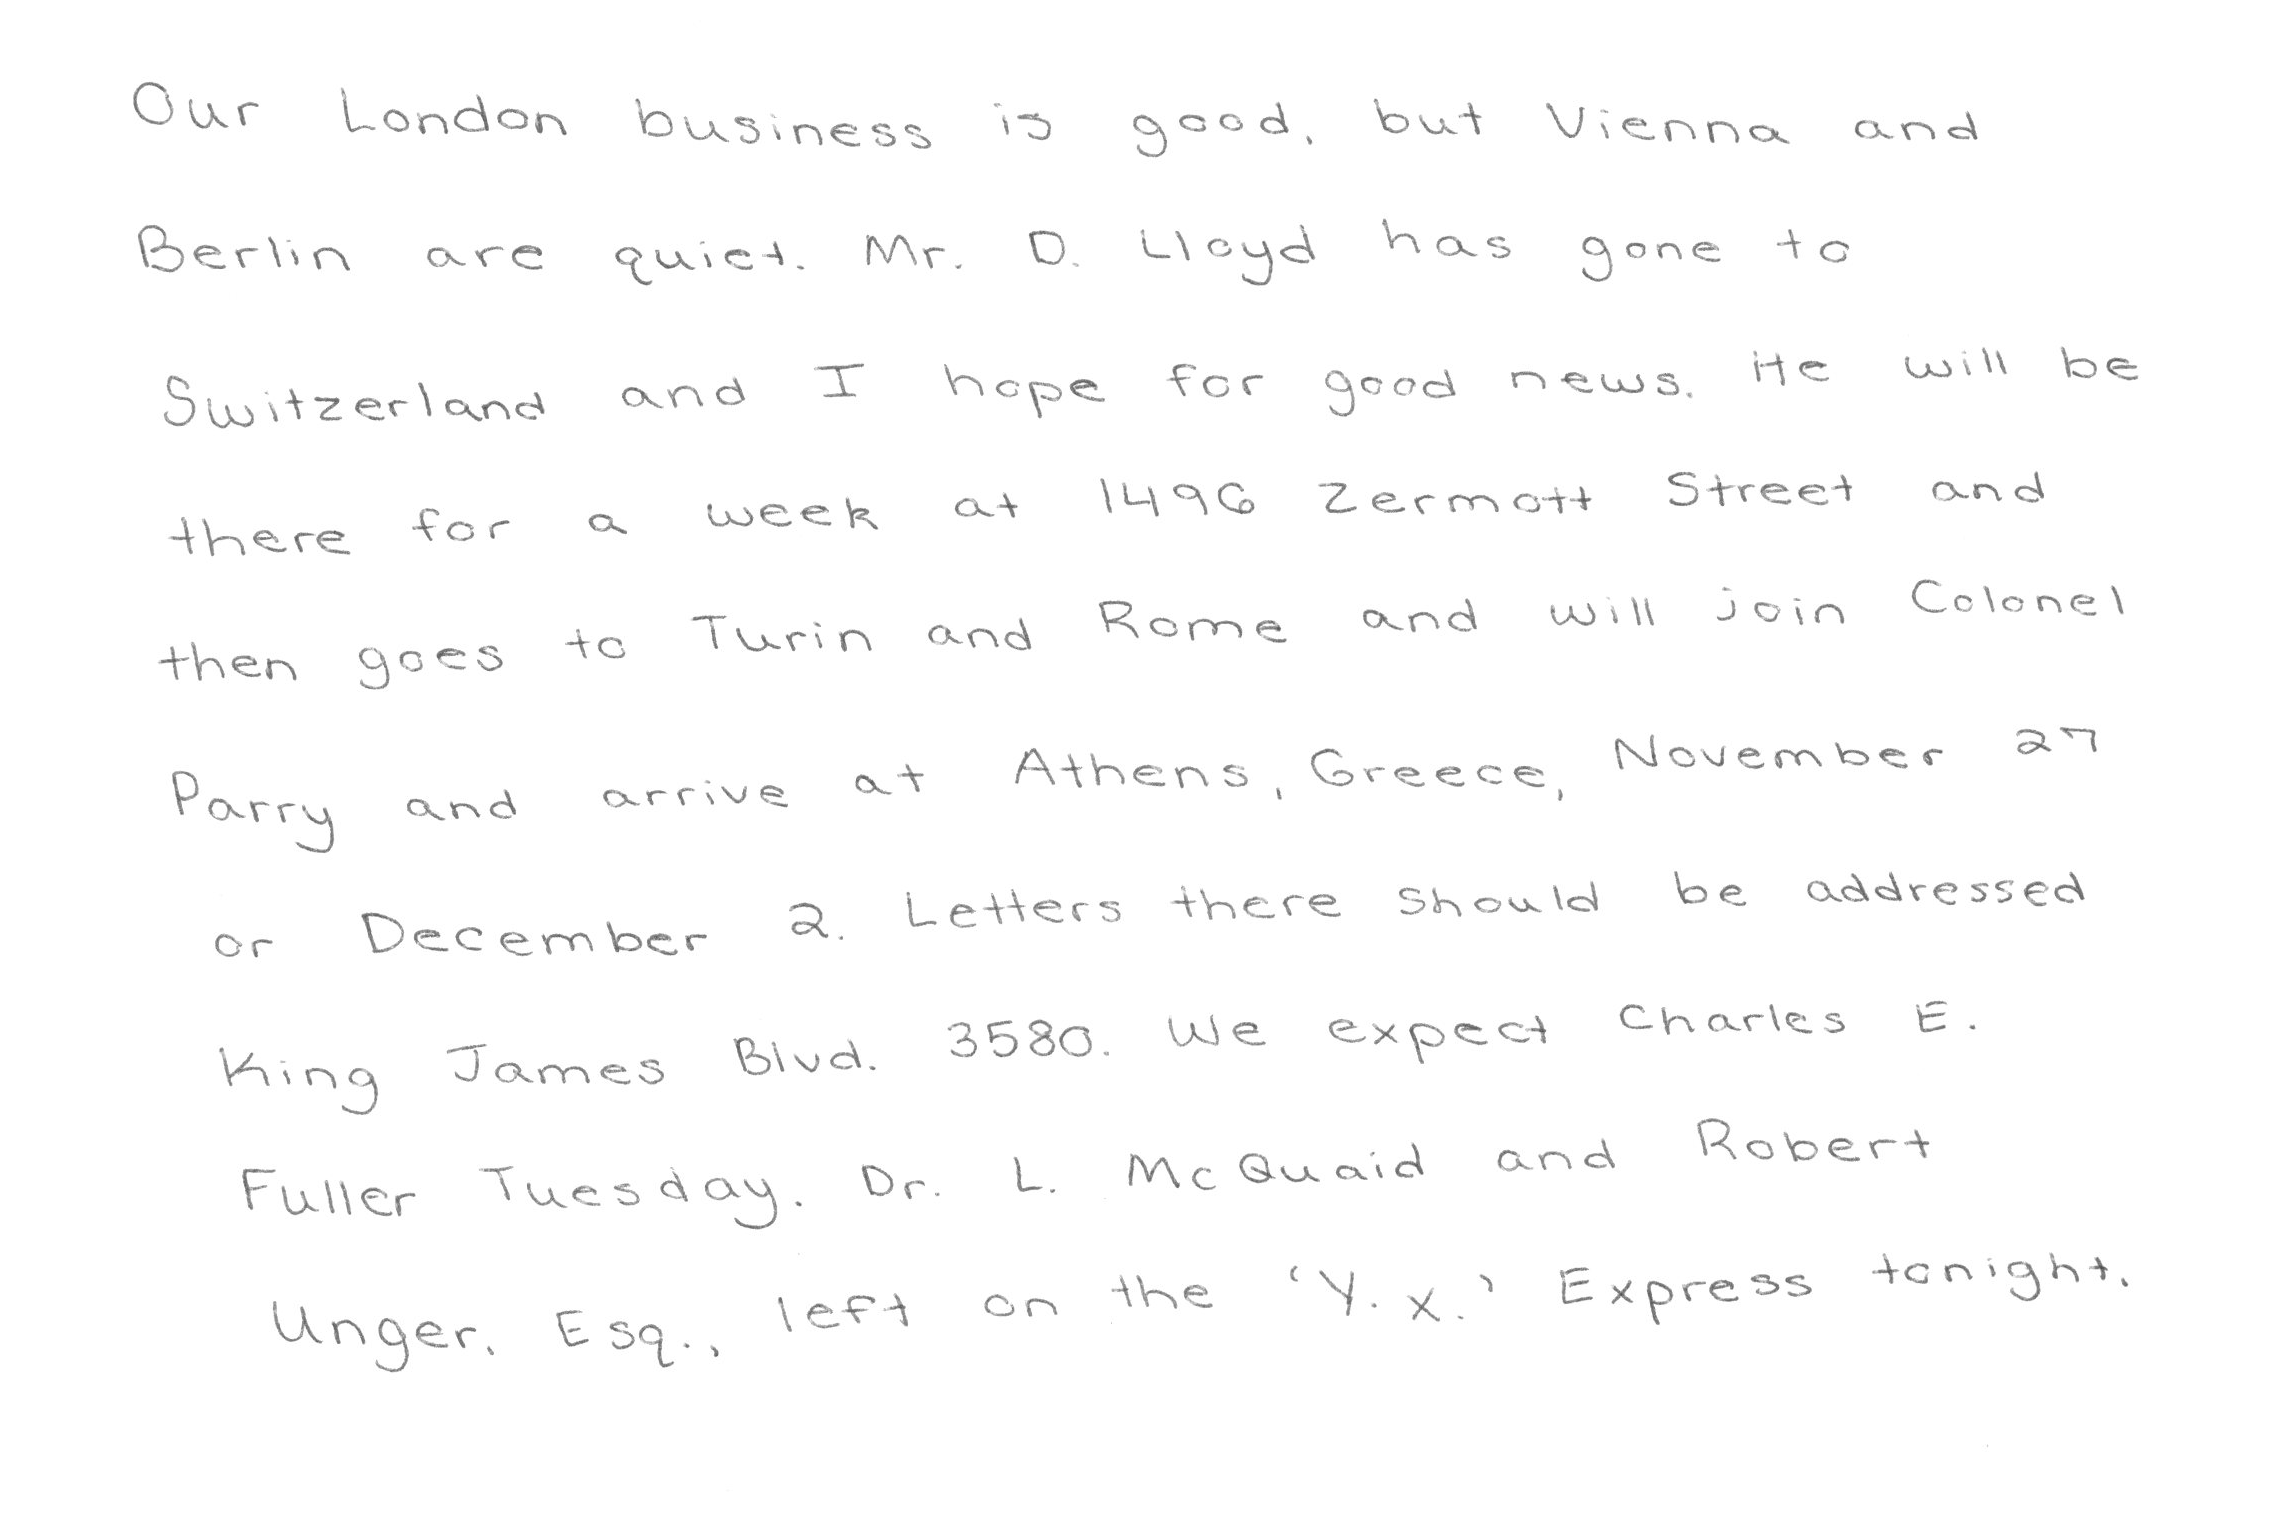 Our London business is good, but Vienna and
Berlin are quiet. Mr. D. Lloyd has gone to
Switzerland and I hope for good news. He will be
there for a week at 1496 Zermott Street and
then goes to Turin and Rome and will join Colonel
Parry and arrive at Athens, Greece, November 27
or December 2. Letters there should be addressed
King James Blvd. 3580. We expect Charles E.
Fuller Tuesday. Dr. L. McQuaid and Robert
Unger, Esq., left on the 'Y.X.' Express tonight.